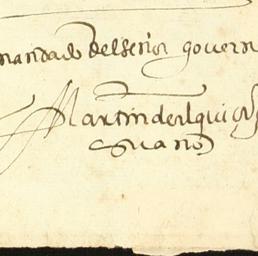 mandado del señor govern
Martin de alquiça
suano